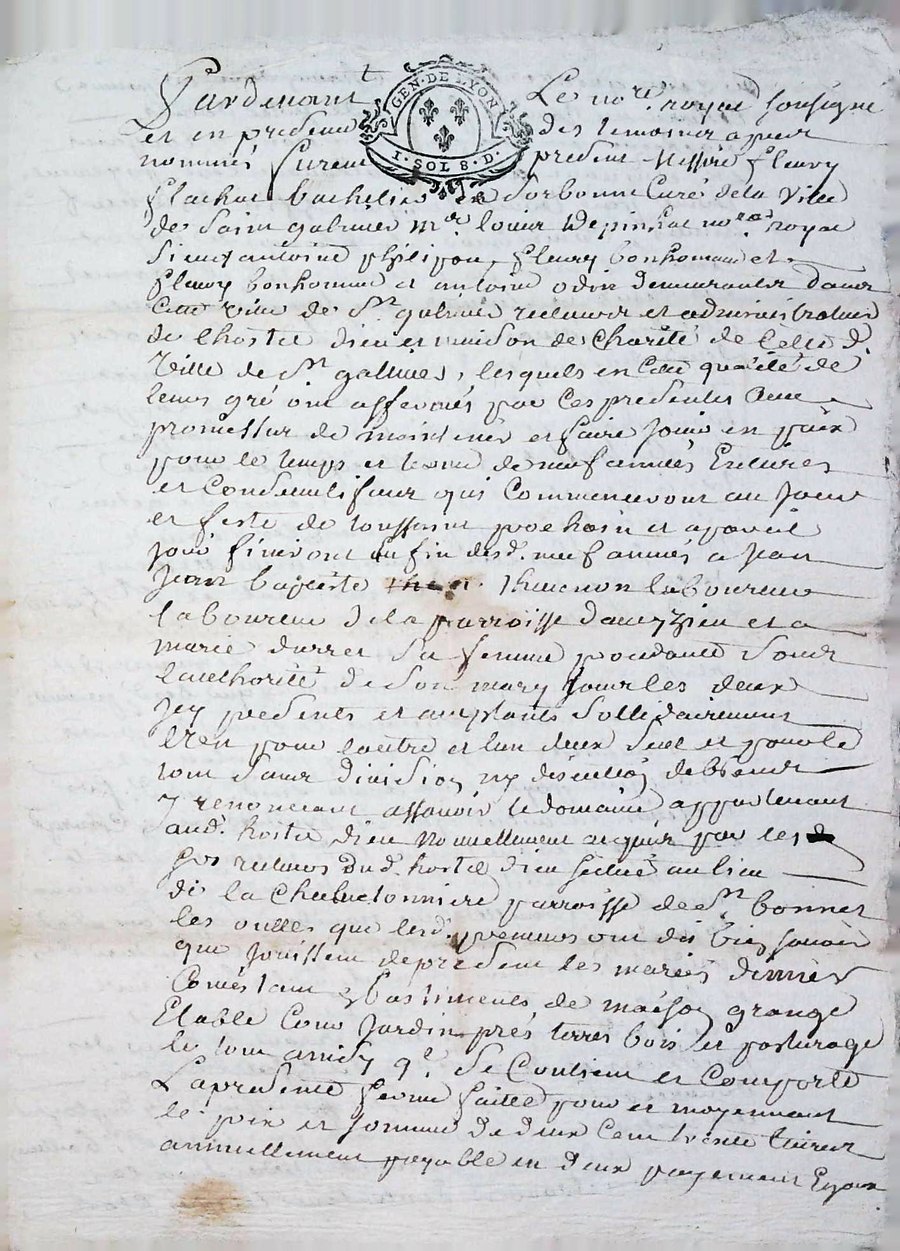 GEN·DE LYON
I·SOL 8·D·
Pardevant Le nore. royal soussigné
et en presence des temoins apres
nommés furent present Messire fleury
flachat bachelier en Sorbonne Curé de la Ville
de Saint galmier mr. louis Depinhac nore. royal
Sieur antoine philipon, fleury bonhomme et
fleury bonhomme et antoine odin demeurants dans
cette ville de St galmier recteurs et administrateurs
de lhostel dieu et maison de Charité de celle d.
Ville de St galmier, lesquels en cette qualité de
leurs gré ont affermés par ces presentes avec
promesse de maintenir et faire jouir en paix
pour le temps et terme de neuf années Entieres
et Consecutifves qui Commenceront au jour
et feste de toussaint prochain et a pareil
jour finiront En fin desd. neuf années a jean
jean baptiste thevenon laboureur
laboureur de la parroisse d'aveyzieu et a
marie durret sa femme procedante sous
lauthorité de son mary tous les deux
jcy presents et acceptants sollidairement
l'un pour lautre et lun deux seul et pour le
tout sans division ny discution de biens
y renonceant assavoir le domaine appartenant
aud. hostel dieu nouvellement acquis par les
Srs recteurs dud. hostel dieu scitué au lieu
de la parroisse de St bonnet
les oulles que lesd. preneurs ont dit bien savoir
que jouissent de present les mariés
Consistant En bastiments de maison grange
Etable Cour jardin prés terres bois et pasturage
le tout ainsy qe. se Contient et Comporte
La presente ferme faitte pour et moyennant
le prix et somme de deux cent trente livres
annuellement payable en deux payements Egaux